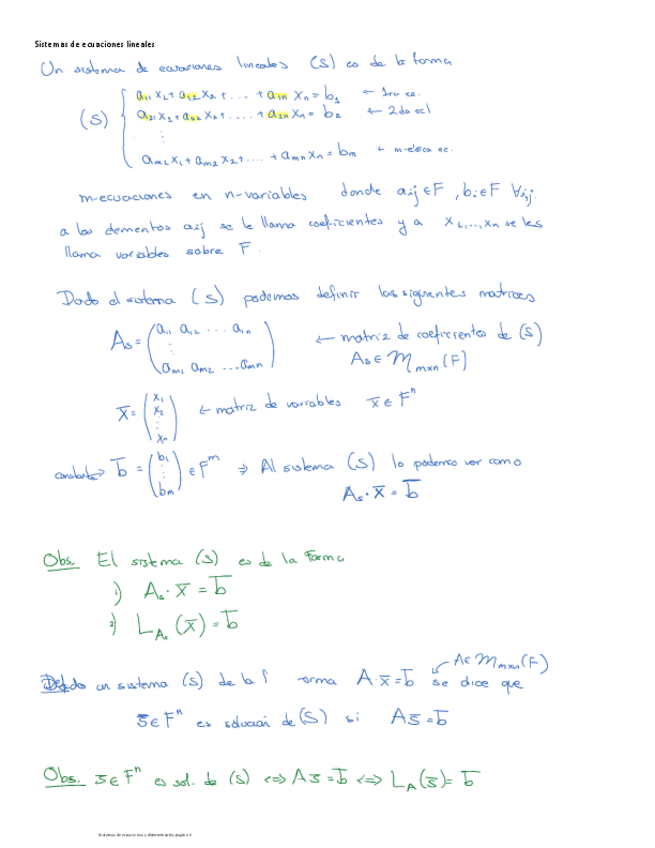 Sistemas de ecuaciones lineales
Un sistema de ecuaciones lineales (S) es de la forma
(S) { a11 x1 + a12 x2 + .... + a1n xn = b1 ← 1era ec.
a21 x1 + a22 x2 + .... + a2n xn = b2 ← 2da ec
⋮
am1 x1 + am2 x2 + .... + amn xn = bm ← m-ésima ec.
m-ecuaciones en n-variables donde aij ∈ F, bi ∈ F ∀i,j.
a los elementos aij se le llama coeficientes y a x1,..,xn se les
llama variables sobre F.
Dado el sistema (S) podemos definir las siguientes matrices
As = (a11 a12 ... a1n ⋮ am1 am2 ... amn) ← matriz de coeficientes de (S)
As ∈ Mmxn(F)
x̄ = (x1 x2 ⋮ xn) ← matriz de variables x̄ ∈ F^n
constantes → b̄ = (b1 ⋮ bm) ∈ F^m ⇒ Al sistema (S) lo podemos ver como
As · x̄ = b̄
Obs. El sistema (S) es de la forma
1) As · x̄ = b̄
2) LAs (x̄) = b̄
un sistema (S) de la forma A·x̄ = b̄ ← A∈Mmxn(F) se dice que
s̄ ∈ F^n es solución de (S) si As̄ = b̄
Obs. s̄ ∈ F^n es sol. de (S) ⇔ As̄ = b̄ ⇔ LA(s̄) = b̄